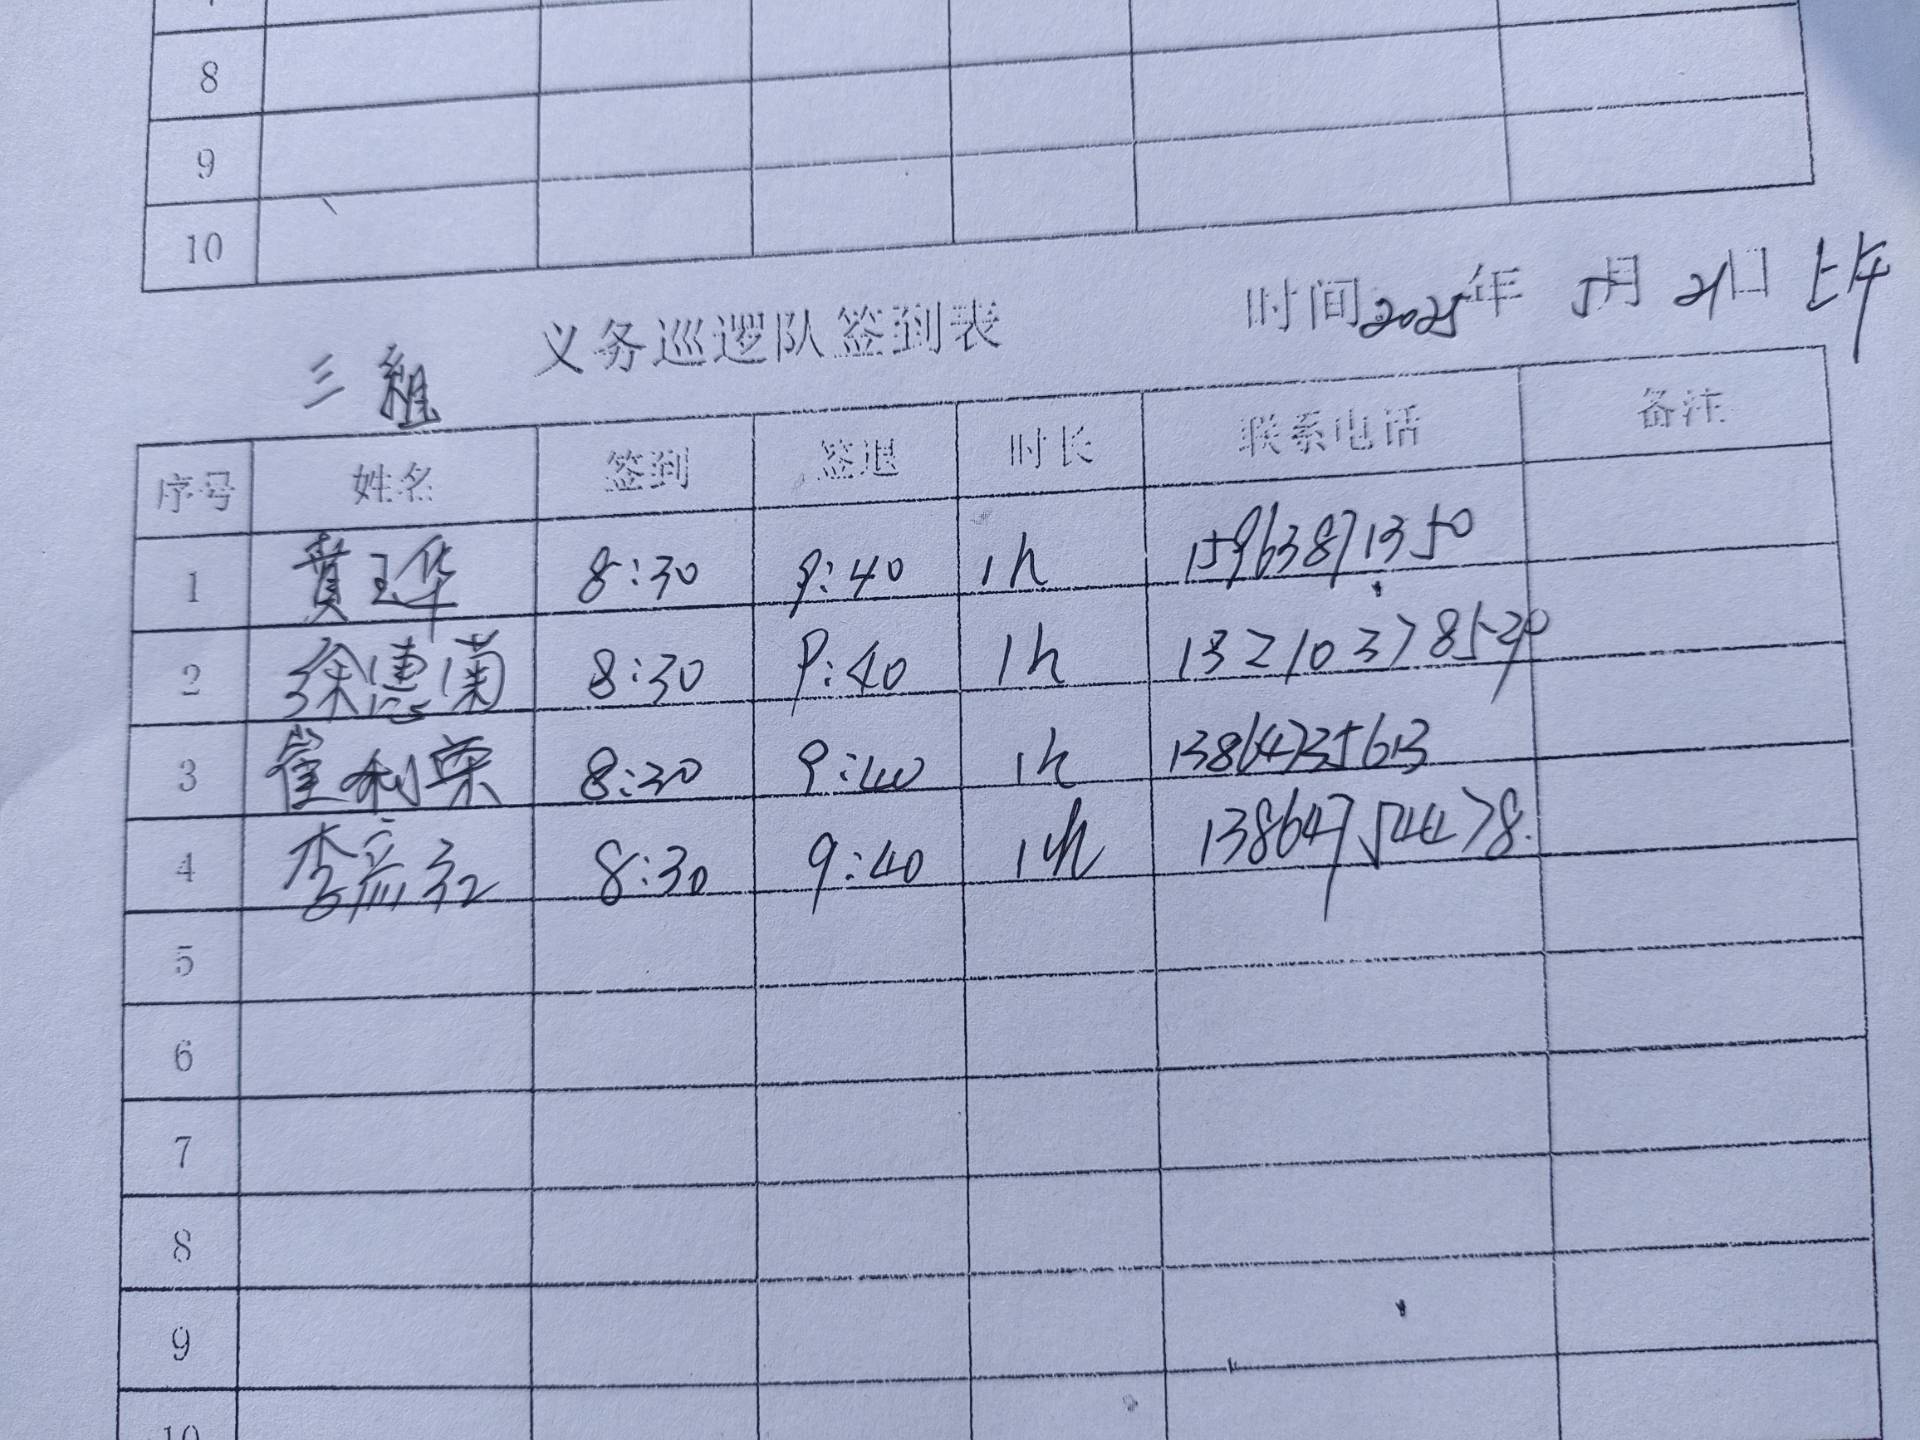 8
9
10
三組 义务巡逻队签到表 时间2025年 5月 21日 上午
序号 姓名 签到 签退 时长 联系电话 备注
1 黄玉华 8:30 9:40 1h 15963871350
2 徐惠菊 8:30 9:40 1h
3 崔利荣 8:30 9:40 1h 13864735613
4 8:30 9:40 1h 13864754478.
5
6
7
8
9
10